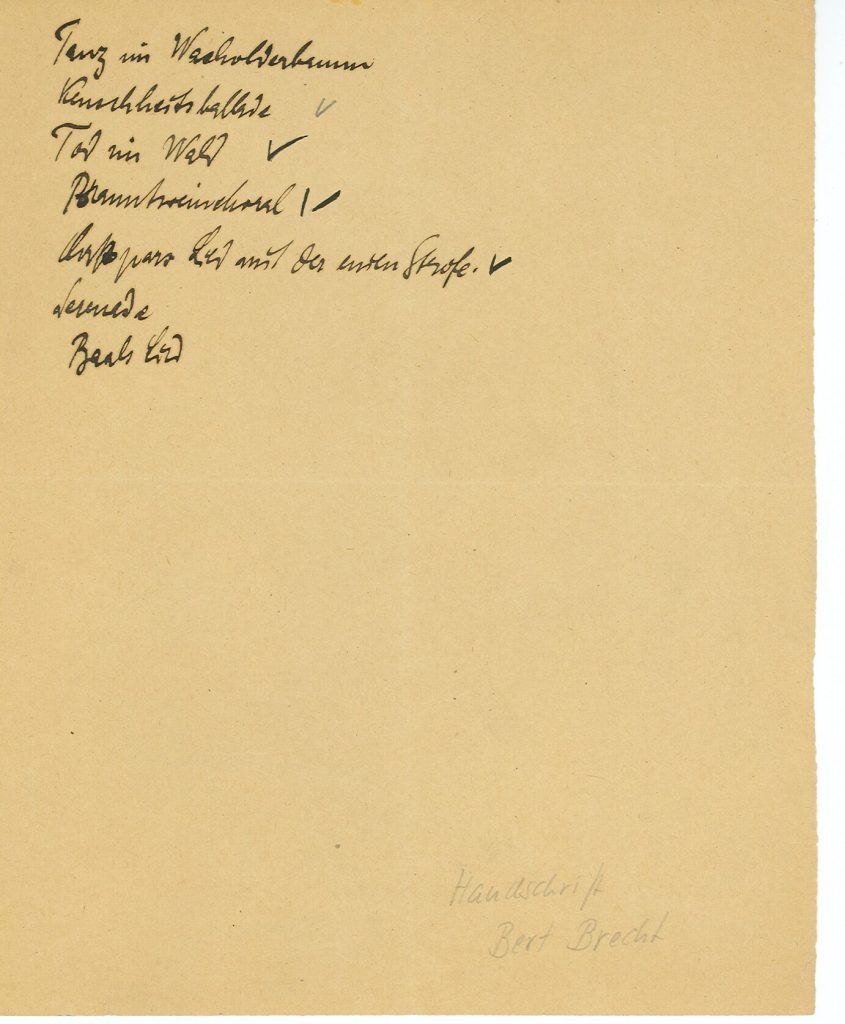 Tanz im Wacholderbaum
Keuschheitsballade
Tod im Wald
Branntweinchoral
Lied mit der einen Strofe.
Serenade
Baals Lied
Handschrift
Bert Brecht